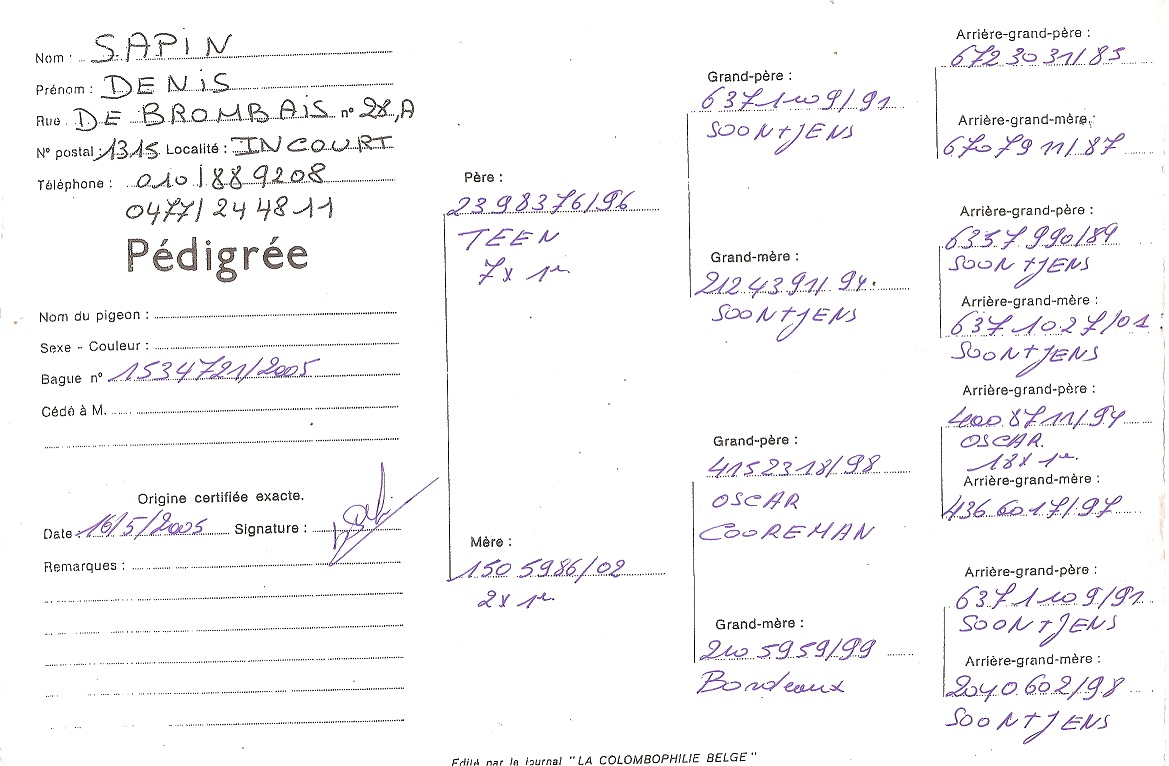 Nom : SAPIN
Prénom : DENIS
Rue DE BROMBAIS n° 28,A
N° postal : 1315 Localité : INCOURT
Téléphone : 010/889208
0477/244811
Pédigrée
Nom du pigeon :
Sexe - Couleur :
Bague n° 1534721/2005
Cédé à M.
Origine certifiée exacte.
Date : 16/5/2005 Signature :
Remarques :
Père :
2398376/96
TEEN
7x 1er
Mère :
1505986/02
2x 1er
Grand-père :
6371109/91
SOONTJENS
Grand-mère :
2124391/94.
SOONTJENS
Grand-père :
4152318/98
OSCAR
COOREMAN
Grand-mère :
2105959/99
Bordeaux
Arrière-grand-père :
6723031/85
Arrière-grand-mère :
6707911/87
Arrière-grand-père :
6357990/89
SOONTJENS
Arrière-grand-mère :
6371027/01
SOONTJENS
Arrière-grand-père :
4008711/94
OSCAR.
18x 1er.
Arrière-grand-mère :
4366017/97
Arrière-grand-père :
6371109/91
SOONTJENS
Arrière-grand-mère :
2040602/98
SOONTJENS
Edité par le journal "LA COLOMBOPHILIE BELGE"